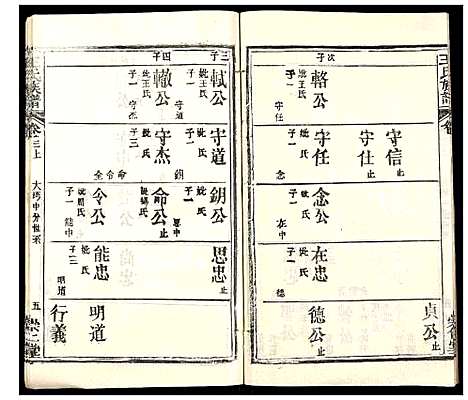 王氏族譜
卷
次子
輅公
子一
守任
守任
子一
念
守仕止
守信止
念公
子一
在中
在忠
子一
德
德公止
貞公止
三子
軾公
妣王氏
子一
守道
守道
妣氏
子一
鈅
鈅公
妣氏
子一
思中
思忠止
四子
轍公
妣王氏
子一
守杰
守杰
妣氏
子三
命令全
命公止
令公
子一
能中
能忠
妣氏
子二
明道
明道
行義
氏族譜
卷三上
大巧中分世系
五